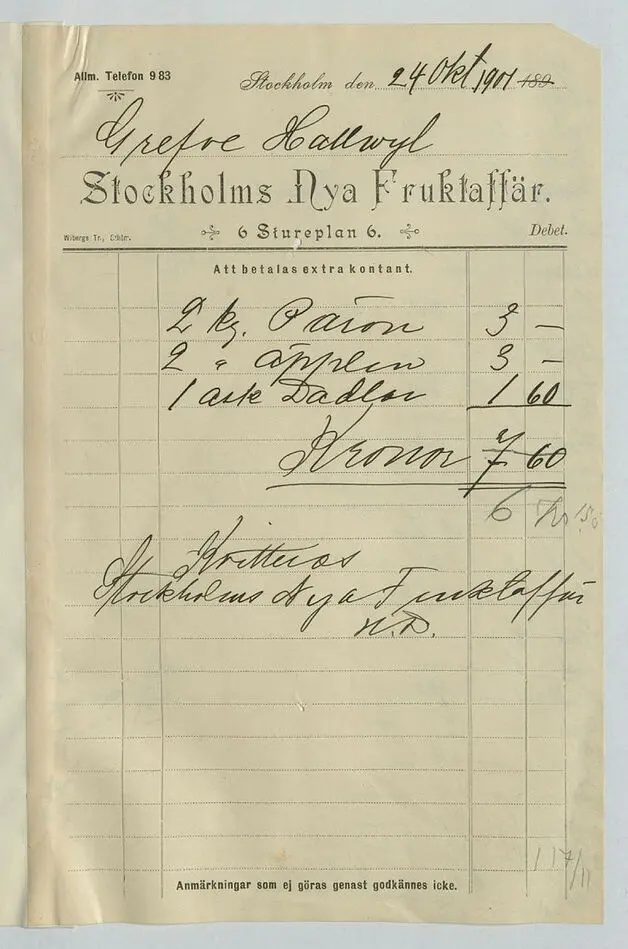 Allm. Telefon 983
Stockholm den 24 Okt 1901 189
Grefve Hallwyl
Stockholms Nya Fruktaffär.
6 Stureplan 6.
Wibergs Tr., Sthlm.
Debet.
Att betalas extra kontant.
2 kg. Päron 3 —
2 " äpplen 3 —
1 ask Dadlar 1 60
Kronor 7 60
6 Kr 50
Kvitteras
Stockholms Nya Fruktaffär
117/11
Anmärkningar som ej göras genast godkännes icke.